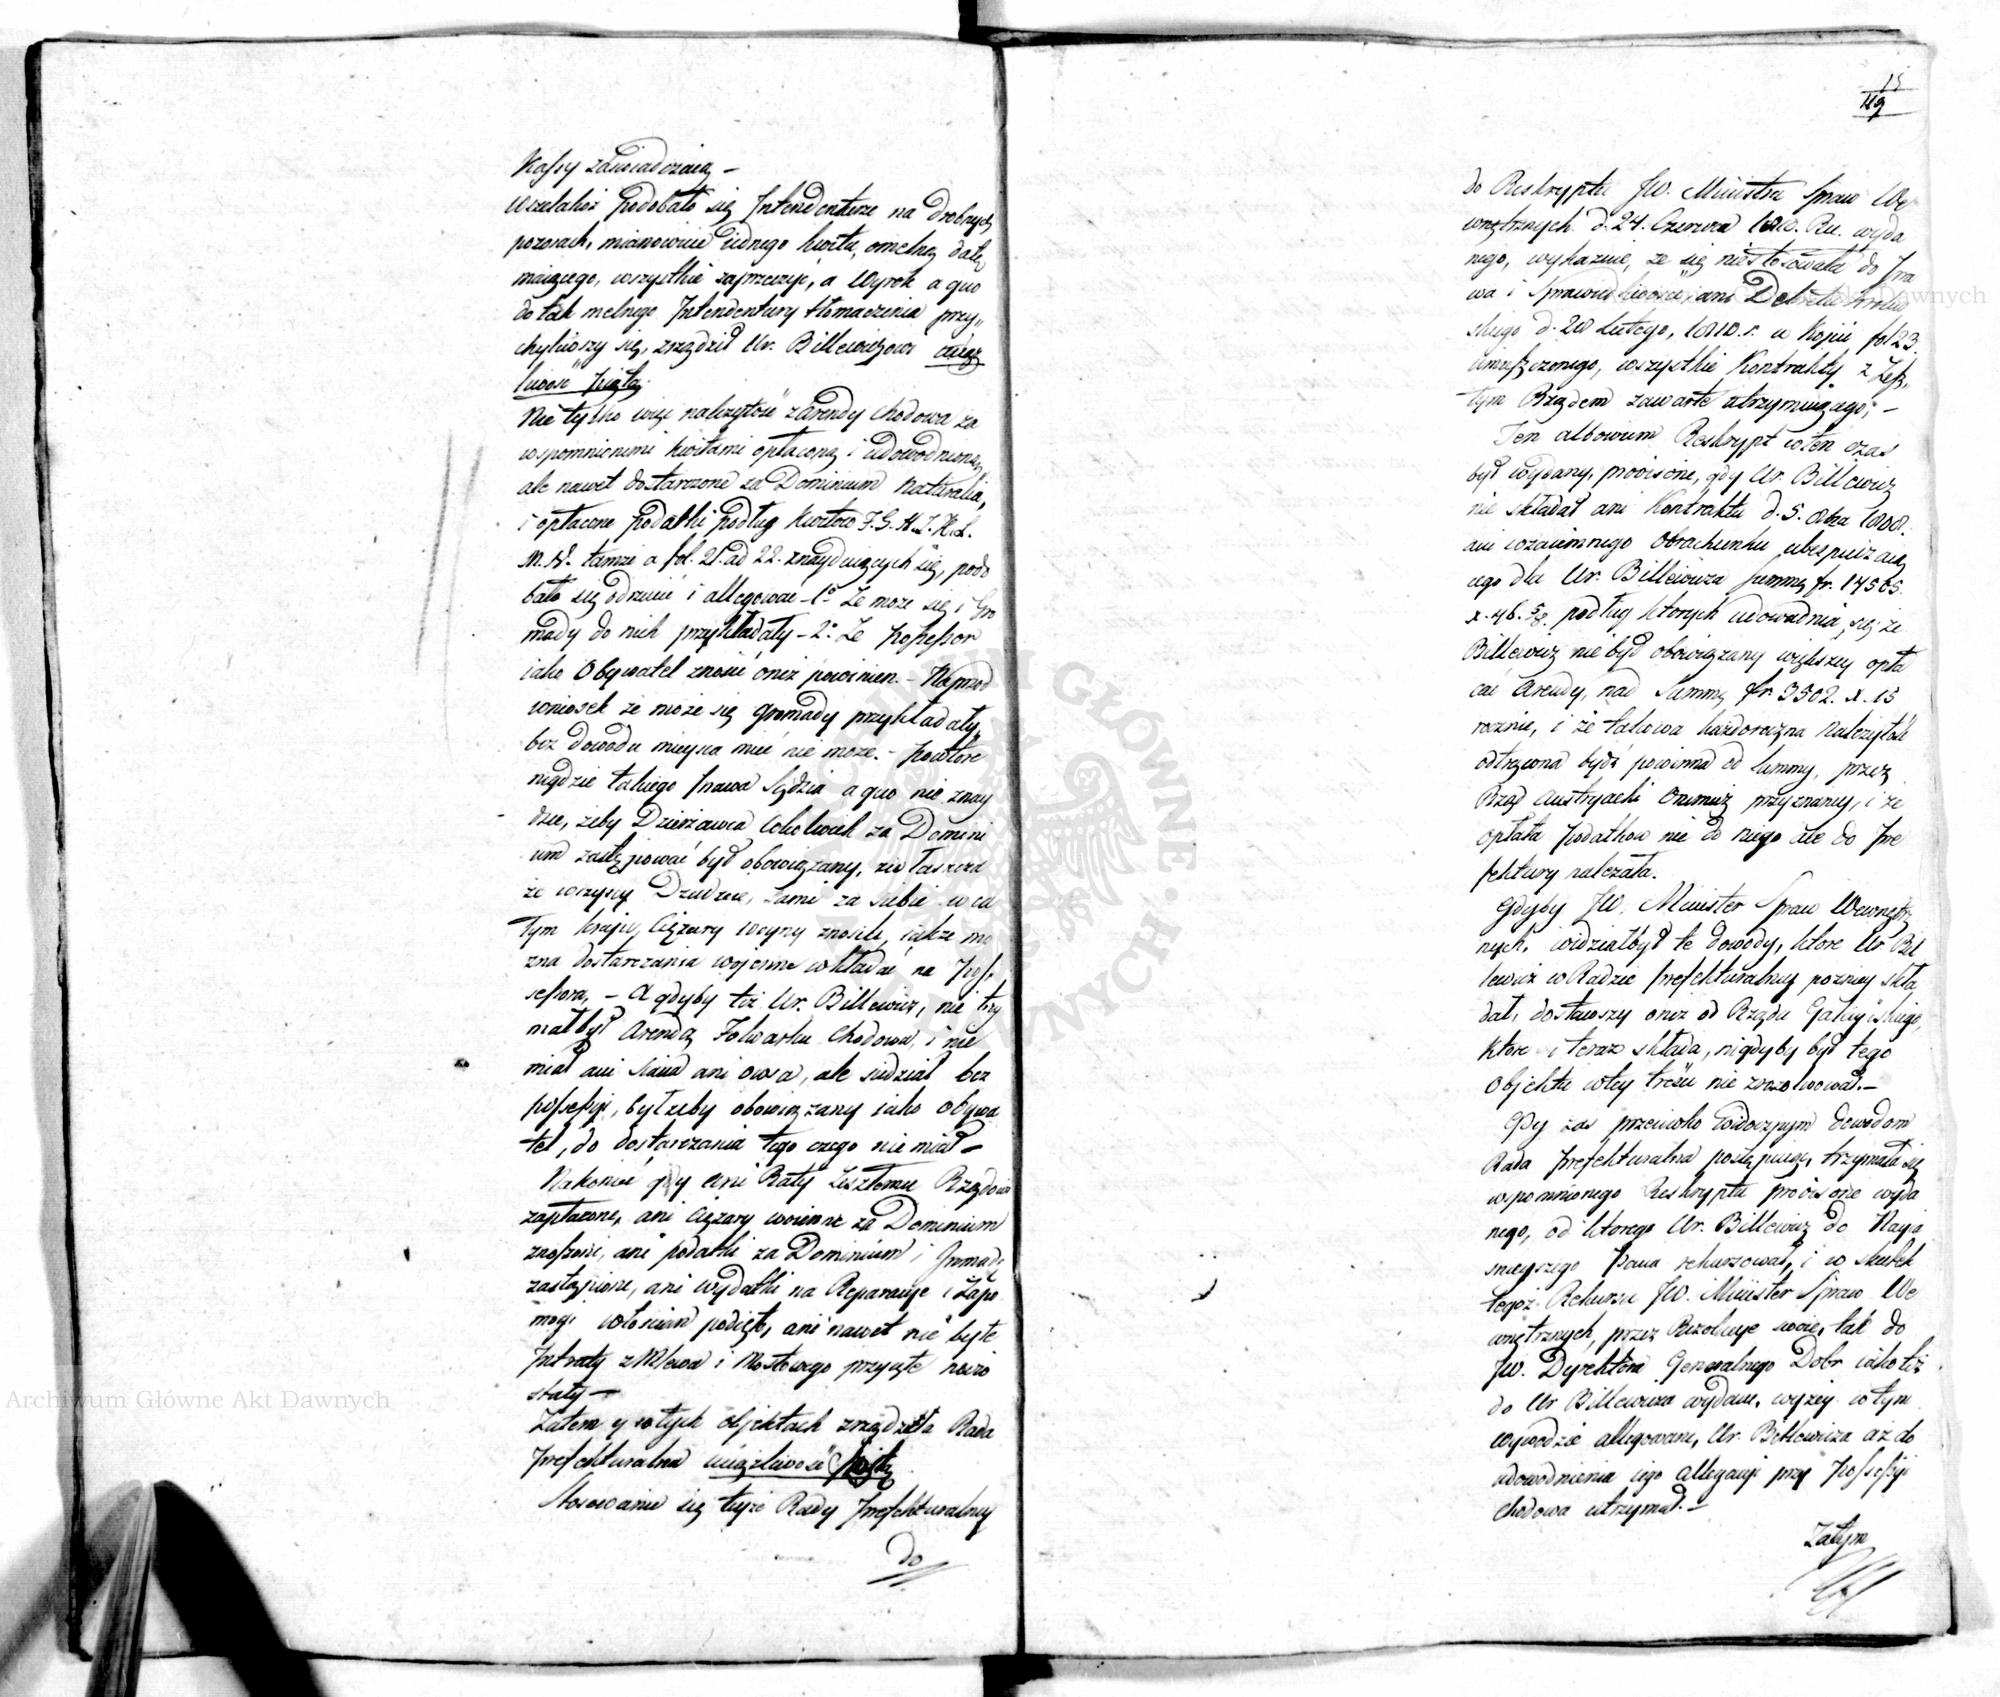 Kassy zaświadczaią –
wszelakoż podobało się Intendenturze na drobnych
pozorach, mianowicie iednego kwitu, omelną datę
maiącego, wszystkie zaprzeczyć, a Wyrok a quo
do tak melnego Intendentury tłomaczenia przy„
chyliwszy się, zrządził Ur. Billewiczowi uciąż
liwość piątą.
Nie tylko więc należytość z arendy Chodowa za
wspomnionemi kwitami opłaconą i udowodnioną,
ale nawet dostarczone za Dominium Naturalia,
i opłacone podatki podług kwitów F. G. H. I. K. L.
M. N. tamże a fol. 21. ad 22. znayduiących się, podo
bało się odrzucić i allegować – 1o Że może się i Gro
mady do nich przykładały – 2o Że Possessor
iako Obywatel znosić oneż powinien. – Naprzód
wniosek że może się Gromady przykładały,
bez dowodu mieysca mieć nie może. – powtóre
nigdzie takiego prawa Sędzia a quo nie znay
dzie, żeby Dzierżawca cokolwiek za Domini
um zastępować był obowiązany, zwłaszcza
że wszyscy Dziedzice, sami za siebie w ca
łym kraju, Ciężary woyny znosili, iakże mo
żna dostarczania wojenne wkładać na Pos„
sessora, – A gdyby też Ur. Billewicz, nie trzy
małbył Arendą Folwarku Chodowa, i nie
miał ani siana ani owsa, ale siedział bez
possessyi, byłżeby obowiązany iako obywa
tel, do dostarczania tego czego nie miał –
Nakoniec gdy ani Raty Zeszłemu Rządowi
zapłacone, ani Ciężary woienne za Dominium
znoszone, ani podatki za Dominium i Gromadę
zastąpione, ani wydatki na Reparacye i Zapo
mogi włościan podięte, ani nawet nie byłe
Intraty z Mlewa i Mostowego przyięte nie zo
stały –
Zatem y w tych objektach zrządziła Rada
Prefekturalna uciążliwość szóstą
Stosowanie się teyże Rady Prefekturalney
do
15
49
do Reskryptu JW. Ministra Spraw We
wnętrznych d. 24. Czerwca 1810. Ru. wyda
nego, wykazuie, że się niestosowała do Pra
wa i Sprawiedliwości, ani Dekretu Królew
skiego d. 28 Lutego, 1810. r. w Kopii fol 23
umieszczonego, wszystkie Kontrakty z Zesz„
łym Rządem zawarte utrzymuiącego; –
Ten albowiem Reskrypt wten czas
był wydany, provisorie, gdy Ur. Billewicz
nie składał ani Kontraktu d. 5. 1808.
ani wzaiemnego Obrachunku ubespieczaią
cego dla Ur. Billewicza Summę fr. 17565.
x. 46. 5/8. podług których udowadnia się że
Billewicz nie był obowiązany większey opła
cać Arendy, nad Summę fr. 3502. x. 15
rocznie, i że takowa każdoroczna należytość
odtrącona bydź powinna od Summy, przez
Rząd Austryacki Onemuż przyznaney, i że
opłata podatków nie do niego ale do Pre
fektury należała.
Gdyby JW. Minister Spraw Wewnętrz
nych, widziałbył te dowody, które Ur Bil
lewicz w Radzie Prefekturalney pozniey skła
dał, dostawszy oneż od Rządu Galicyiskiego,
które i teraz składa, nigdyby był tego
Objektu wtey treści nie zrezolwował. –
Gdy zaś przeciwko widocznym dowodom
Rada Prefekturalna postępuiąc, trzymała się
wspomnionego Reskryptu provisorie wyda
nego, od którego Ur. Billewicz do Nayja
snieyszego Pana rekurzował, i w skutek
tegoż Rekursu JW. Minister Spraw We
wnętrznych, przez Rezolucye swoie, tak do
JW. Dyrektora Generalnego Dóbr iako też
do Ur Billewicza wydane, wyżey w tym
wywodzie allegowane, Ur. Bellewicza aż do
udowodnienia iego allegacyi przy Possessyi
Chodowa utrzymał. –
Zatym